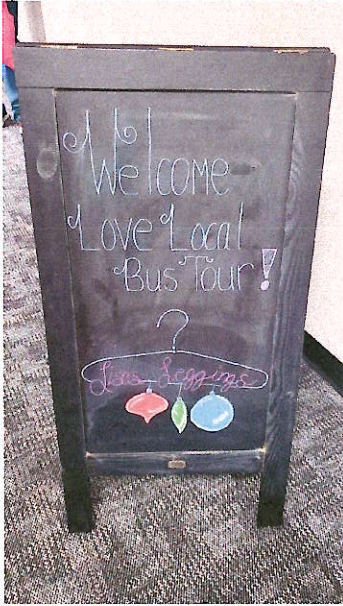 Welcome
Love Local
Bus Tour!
Leggings